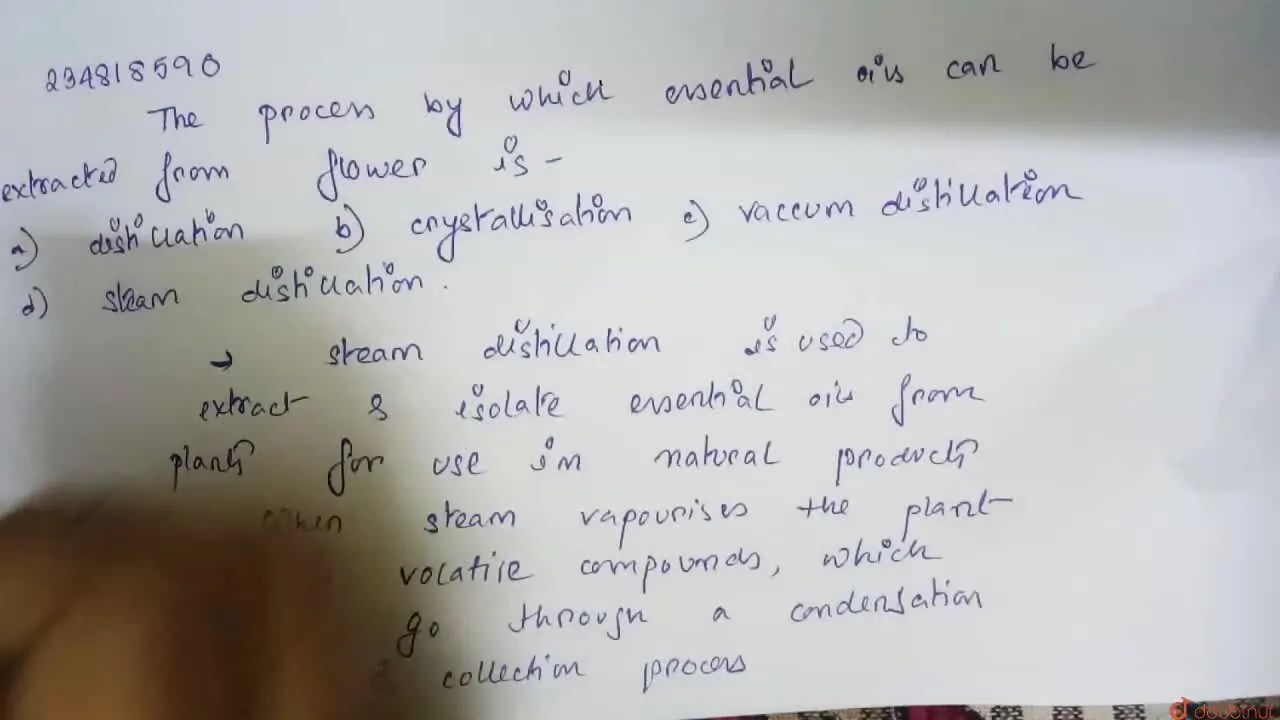 234818590
The process by which essential oils can be
extracted from flower is -
a) distillation b) crystallisation c) vaccum distillation
d) steam distillation.
→ steam distillation is used to
extract & isolate essential oils from
plants for use in natural products
when steam vapourises the plant
volatile compounds, which
go through a condensation
collection process
doubtnut